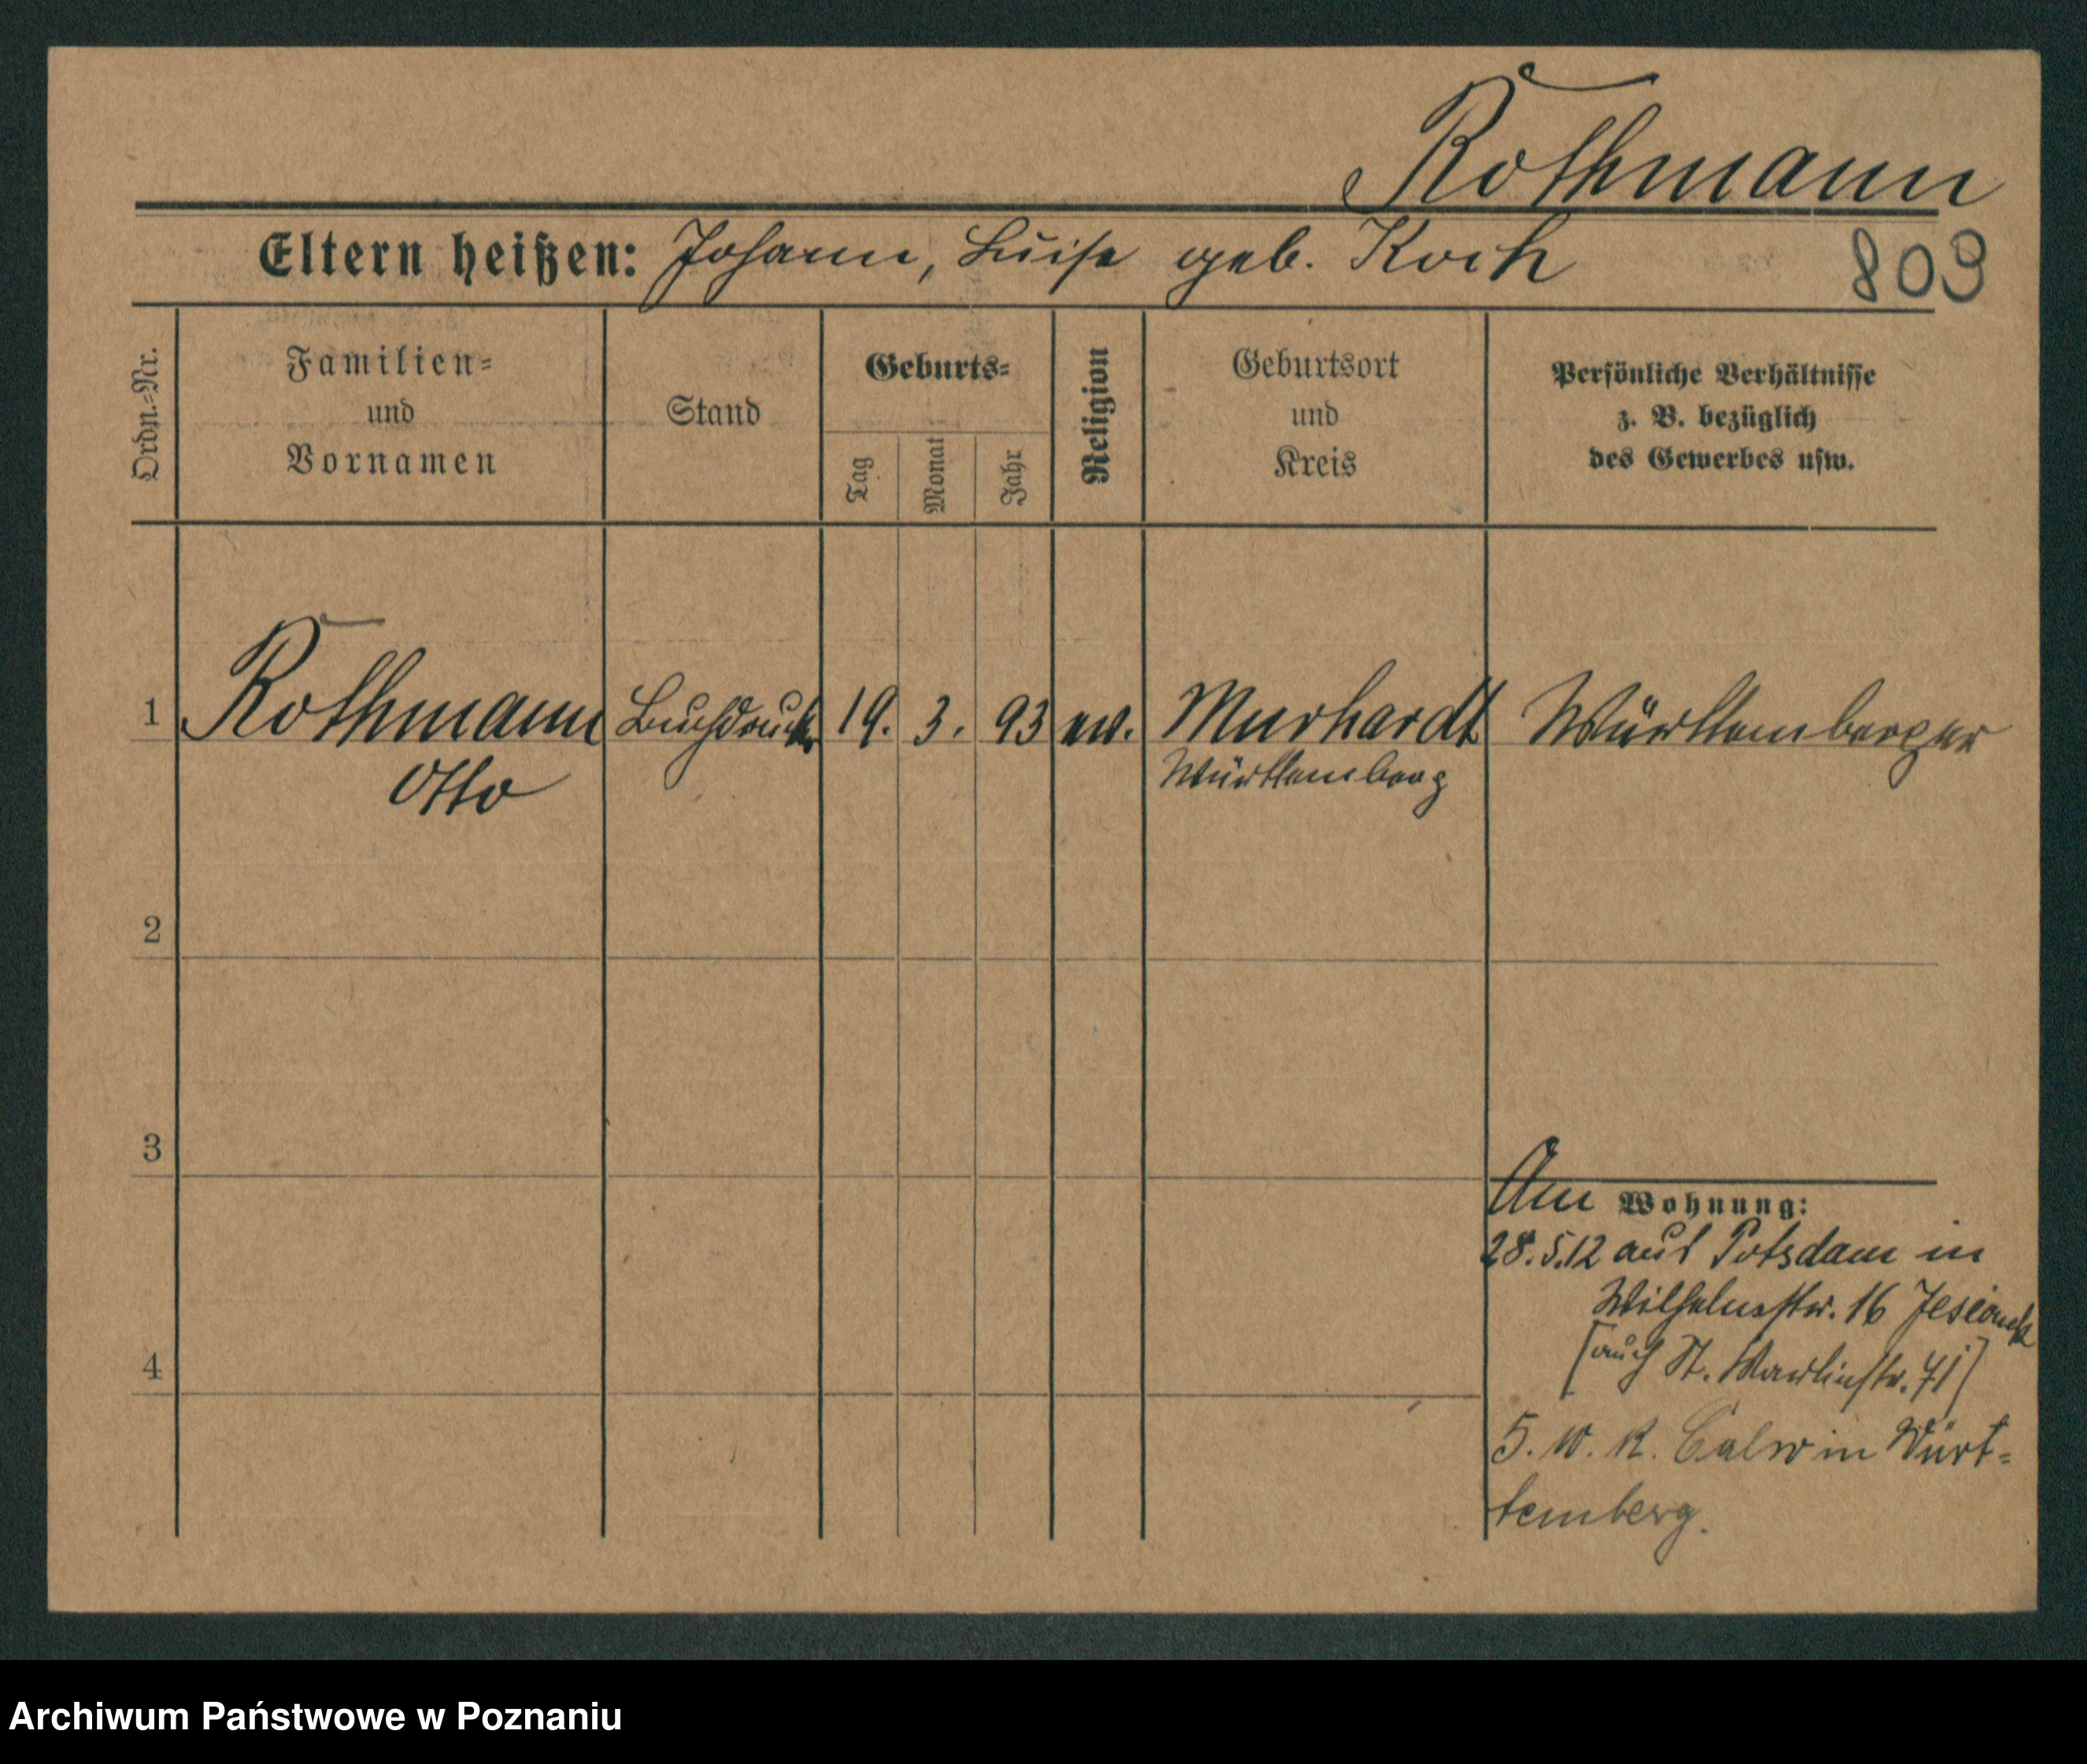 Rothmann
Eltern heißen: Johann, Luise geb. Koch
803
Ordn.-Nr.
Familien-
und
Vornamen
Stand
Geburts-
Tag
Monat
Jahr
Religion
Geburtsort
und
Kreis
Persönliche Verhältnisse
z. B. bezüglich
des Gewerbes usw.
1 Rothmann Buchdrucker 19. 3. 93 ev. Murhardt Württemberger
Otto Württemberg
2
3
Am Wohnung:
28.5.12 aus Potsdam in
Wilhelmstr. 16 Jesionek
[auch St. Martinstr. 71]
4
5. 10. R. Calw in Würt-
temberg.
Archiwum Państwowe w Poznaniu